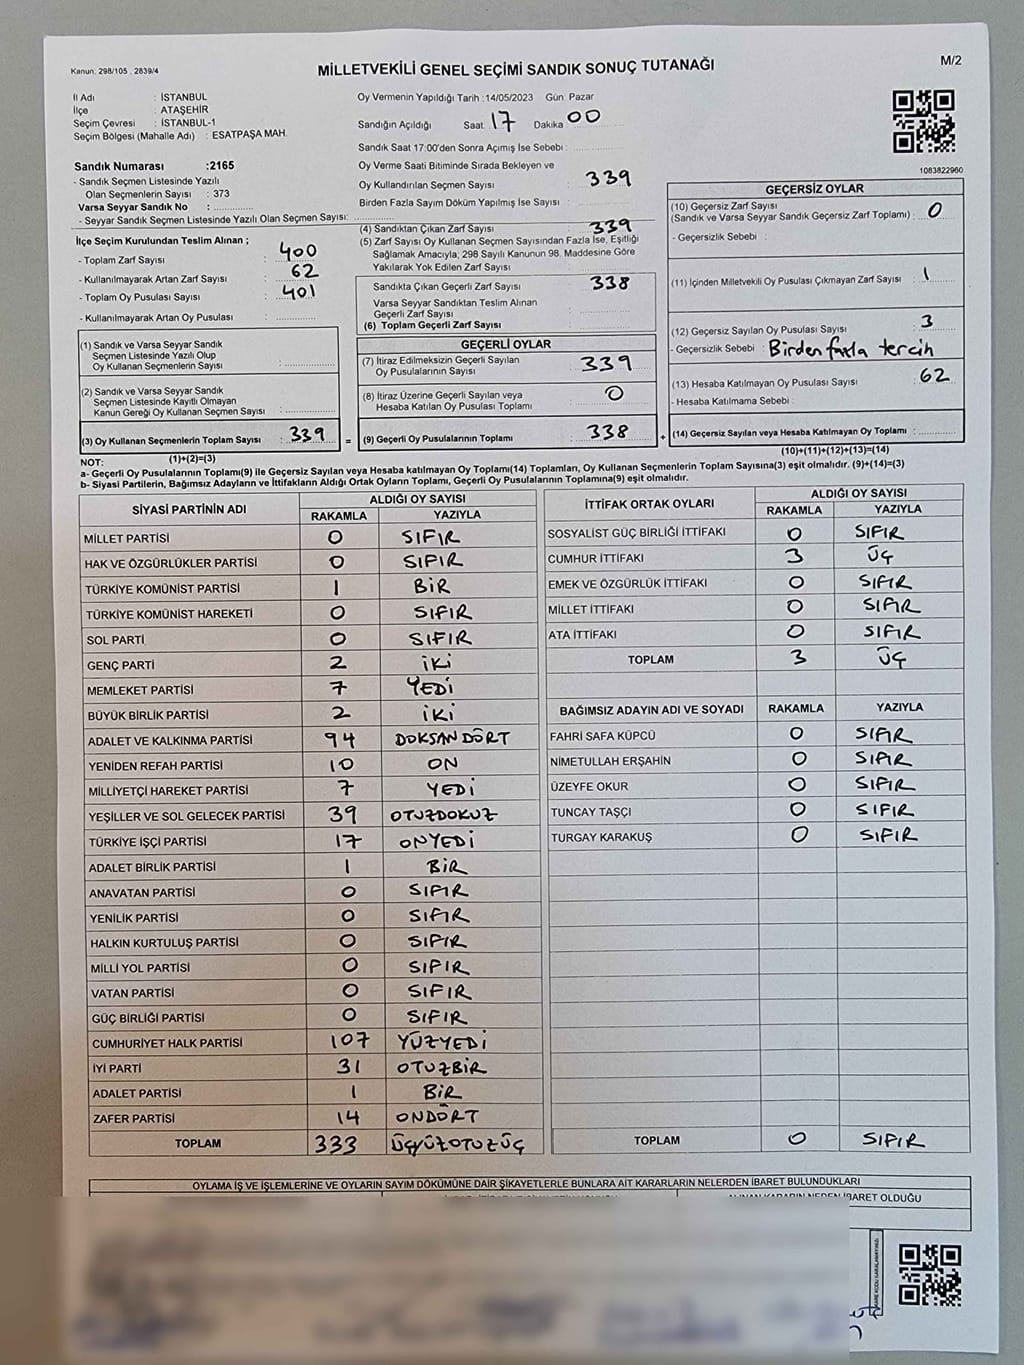 Kanun: 298/105 , 2839/4
MİLLETVEKİLİ GENEL SEÇİMİ SANDIK SONUÇ TUTANAĞI
M/2
İl Adı : İSTANBUL
İlçe : ATAŞEHİR
Seçim Çevresi : İSTANBUL-1
Seçim Bölgesi (Mahalle Adı) : ESATPAŞA MAH.
Sandık Numarası :2165
- Sandık Seçmen Listesinde Yazılı
Olan Seçmenlerin Sayısı : 373
Varsa Seyyar Sandık No :
- Seyyar Sandık Seçmen Listesinde Yazılı Olan Seçmen Sayısı:
İlçe Seçim Kurulundan Teslim Alınan ;
- Toplam Zarf Sayısı : 400
- Kullanılmayarak Artan Zarf Sayısı : 62
- Toplam Oy Pusulası Sayısı : 401
- Kullanılmayarak Artan Oy Pusulası :
(1) Sandık ve Varsa Seyyar Sandık
Seçmen Listesinde Yazılı Olup
Oy Kullanan Seçmenlerin Sayısı :
(2) Sandık ve Varsa Seyyar Sandık
Seçmen Listesinde Kayıtlı Olmayan
Kanun Gereği Oy Kullanan Seçmen Sayısı :
(3) Oy Kullanan Seçmenlerin Toplam Sayısı : 339 =
(1)+(2)=(3)
Oy Vermenin Yapıldığı Tarih :14/05/2023 Gün: Pazar
Sandığın Açıldığı Saat. 17 Dakika 00
Sandık Saat 17:00'den Sonra Açımış İse Sebebi :
Oy Verme Saati Bitiminde Sırada Bekleyen ve
Oy Kullandırılan Seçmen Sayısı : 339
Birden Fazla Sayım Döküm Yapılmış İse Sayısı :
(4) Sandıktan Çıkan Zarf Sayısı : 339
(5) Zarf Sayısı Oy Kullanan Seçmen Sayısından Fazla İse, Eşitliği
Sağlamak Amacıyla; 298 Sayılı Kanunun 98. Maddesine Göre
Yakılarak Yok Edilen Zarf Sayısı :
Sandıkta Çıkan Geçerli Zarf Sayısı : 338
Varsa Seyyar Sandıktan Teslim Alınan
Geçerli Zarf Sayısı :
(6) Toplam Geçerli Zarf Sayısı :
GEÇERLİ OYLAR
(7) İtiraz Edilmeksizin Geçerli Sayılan
Oy Pusulalarının Sayısı : 339
(8) İtiraz Üzerine Geçerli Sayılan veya
Hesaba Katılan Oy Pusulası Toplamı : 0
(9) Geçerli Oy Pusulalarının Toplamı : 338 +
1083822960
GEÇERSİZ OYLAR
(10) Geçersiz Zarf Sayısı
(Sandık ve Varsa Seyyar Sandık Geçersiz Zarf Toplamı) : 0
- Geçersizlik Sebebi :
(11) İçinden Milletvekili Oy Pusulası Çıkmayan Zarf Sayısı : 1
(12) Geçersiz Sayılan Oy Pusulası Sayısı : 3
- Geçersizlik Sebebi : Birden fazla tercih
(13) Hesaba Katılmayan Oy Pusulası Sayısı : 62
- Hesaba Katılmama Sebebi :
(14) Geçersiz Sayılan veya Hesaba Katılmayan Oy Toplamı :
(10)+(11)+(12)+(13)=(14)
NOT:
a- Geçerli Oy Pusulalarının Toplamı(9) ile Geçersiz Sayılan veya Hesaba katılmayan Oy Toplamı(14) Toplamları, Oy Kullanan Seçmenlerin Toplam Sayısına(3) eşit olmalıdır. (9)+(14)=(3)
b- Siyasi Partilerin, Bağımsız Adayların ve İttifakların Aldığı Ortak Oyların Toplamı, Geçerli Oy Pusulalarının Toplamına(9) eşit olmalıdır.
SİYASİ PARTİNİN ADI ALDIĞI OY SAYISI
RAKAMLA YAZIYLA
MİLLET PARTİSİ 0 SIFIR
HAK VE ÖZGÜRLÜKLER PARTİSİ 0 SIFIR
TÜRKİYE KOMÜNİST PARTİSİ 1 BİR
TÜRKİYE KOMÜNİST HAREKETİ 0 SIFIR
SOL PARTİ 0 SIFIR
GENÇ PARTİ 2 İKİ
MEMLEKET PARTİSİ 7 YEDİ
BÜYÜK BİRLİK PARTİSİ 2 İKİ
ADALET VE KALKINMA PARTİSİ 94 DOKSANDÖRT
YENİDEN REFAH PARTİSİ 10 ON
MİLLİYETÇİ HAREKET PARTİSİ 7 YEDİ
YEŞİLLER VE SOL GELECEK PARTİSİ 39 OTUZDOKUZ
TÜRKİYE İŞÇİ PARTİSİ 17 ONYEDİ
ADALET BİRLİK PARTİSİ 1 BİR
ANAVATAN PARTİSİ 0 SIFIR
YENİLİK PARTİSİ 0 SIFIR
HALKIN KURTULUŞ PARTİSİ 0 SIFIR
MİLLİ YOL PARTİSİ 0 SIFIR
VATAN PARTİSİ 0 SIFIR
GÜÇ BİRLİĞİ PARTİSİ 0 SIFIR
CUMHURİYET HALK PARTİSİ 107 YÜZYEDİ
İYİ PARTİ 31 OTUZBİR
ADALET PARTİSİ 1 BİR
ZAFER PARTİSİ 14 ONDÖRT
TOPLAM 333 ÜÇYÜZOTUZÜÇ
İTTİFAK ORTAK OYLARI ALDIĞI OY SAYISI
RAKAMLA YAZIYLA
SOSYALİST GÜÇ BİRLİĞİ İTTİFAKI 0 SIFIR
CUMHUR İTTİFAKI 3 ÜÇ
EMEK VE ÖZGÜRLÜK İTTİFAKI 0 SIFIR
MİLLET İTTİFAKI 0 SIFIR
ATA İTTİFAKI 0 SIFIR
TOPLAM 3 ÜÇ
BAĞIMSIZ ADAYIN ADI VE SOYADI RAKAMLA YAZIYLA
FAHRİ SAFA KÜPCÜ 0 SIFIR
NİMETULLAH ERŞAHİN 0 SIFIR
ÜZEYFE OKUR 0 SIFIR
TUNCAY TAŞÇI 0 SIFIR
TURGAY KARAKUŞ 0 SIFIR
TOPLAM 0 SIFIR
OYLAMA İŞ VE İŞLEMLERİNE VE OYLARIN SAYIM DÖKÜMÜNE DAİR ŞİKAYETLERLE BUNLARA AİT KARARLARIN NELERDEN İBARET BULUNDUKLARI
ALINAN KARARIN NEDEN İBARET OLDUĞU